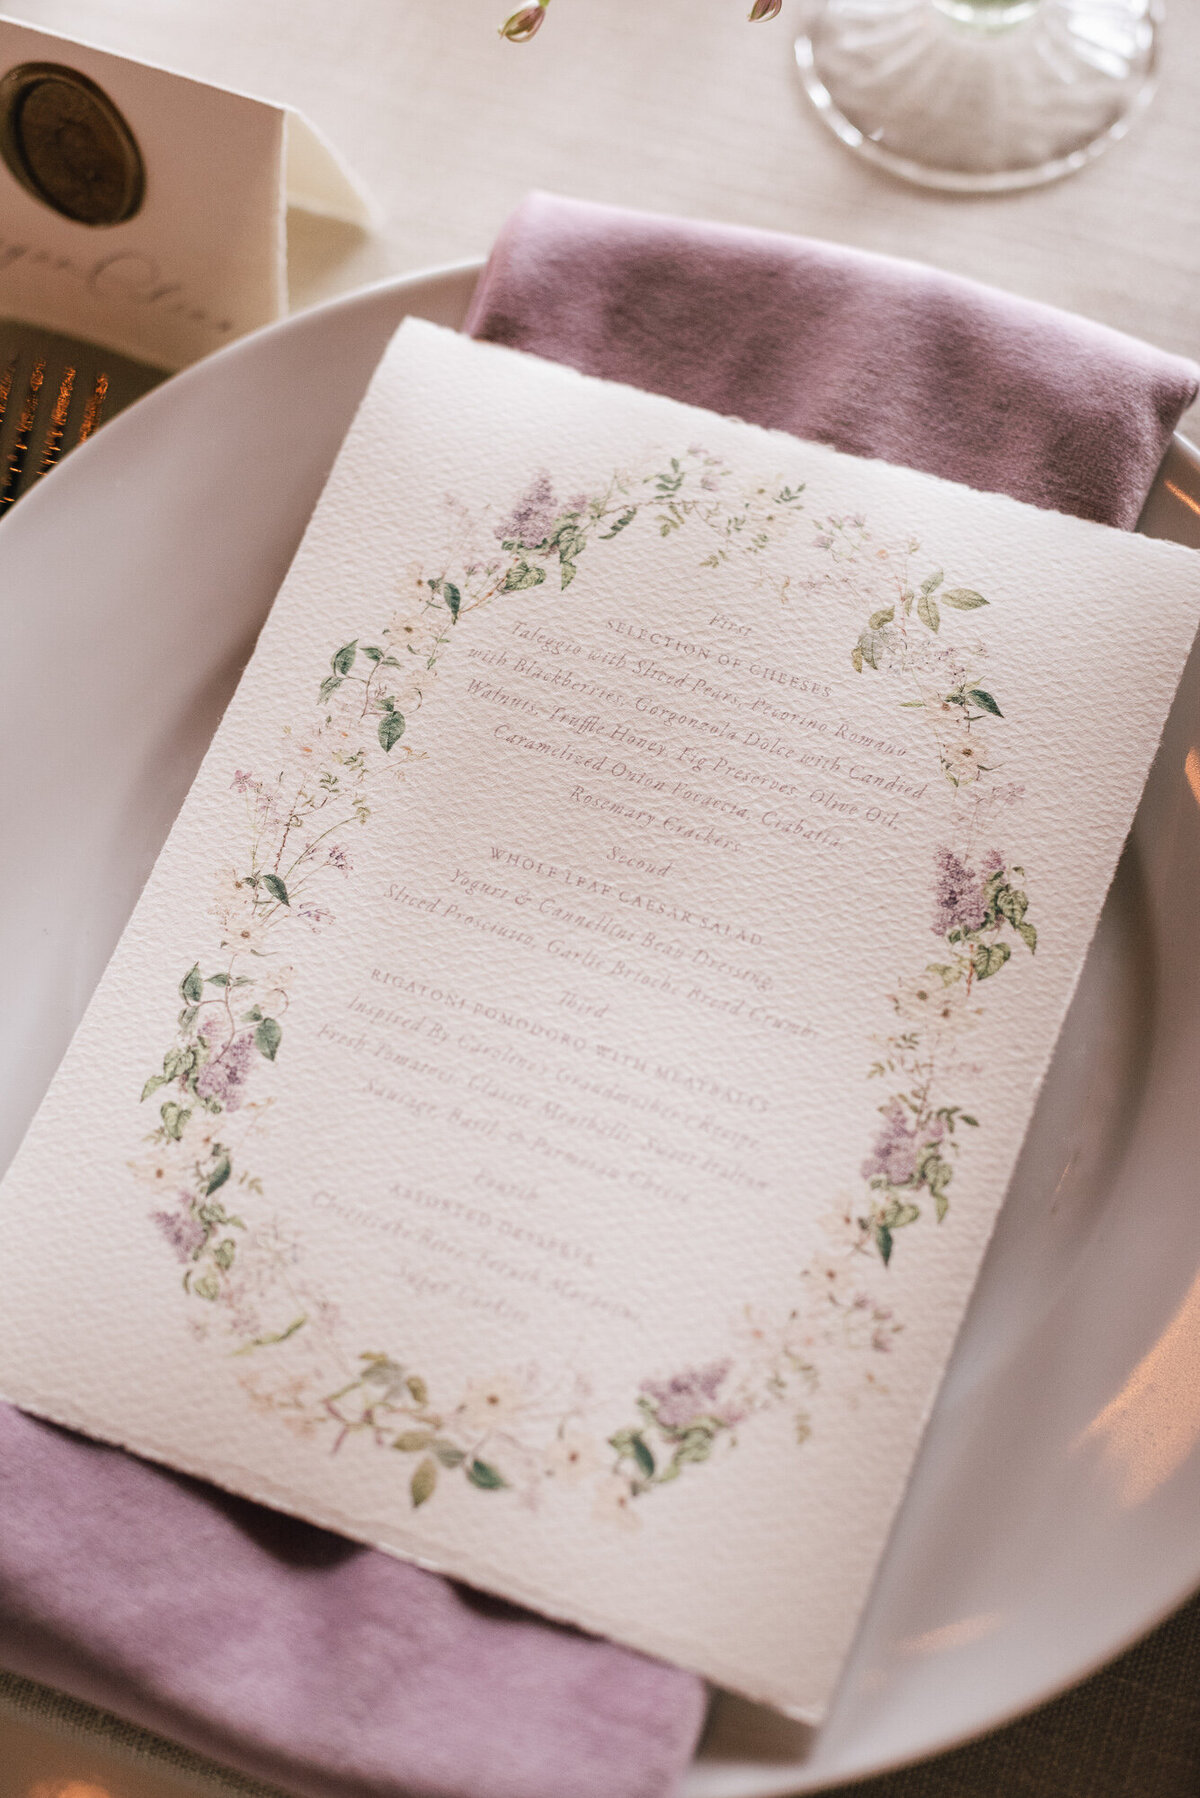 First
SELECTION OF CHEESES
Taleggio with Sliced Pears, Pecorino Romano
with Blackberries, Gorgonzola Dolce with Candied
Walnuts, Truffle Honey, Fig Preserves, Olive Oil,
Caramelized Onion Focaccia, Ciabatta,
Rosemary Crackers
Second
WHOLE LEAF CAESAR SALAD
Yogurt & Cannellini Bean Dressing,
Sliced Prosciutto, Garlic Brioche Bread Crumbs
Third
RIGATONI POMODORO WITH MEATBALLS
Inspired By Carolene's Grandmother's Recipe
Fresh Tomatoes, Classic Meatballs, Sweet Italian
Sausage, Basil & Parmesan Cheese
Fourth
ASSORTED DESSERTS
Cheesecake Bites, French Macarons,
Sugar Cookies